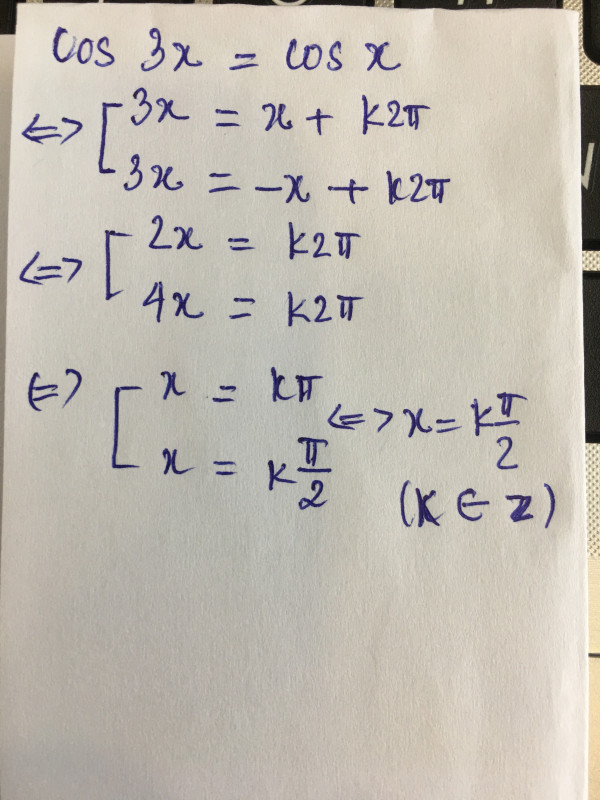 cos 3x = cos x
<=> [ 3x = x + k2π
3x = -x + k2π
<=> [ 2x = k2π
4x = k2π
<=> [ x = kπ
x = k π/2 <=> x = k π/2
(k ∈ z)